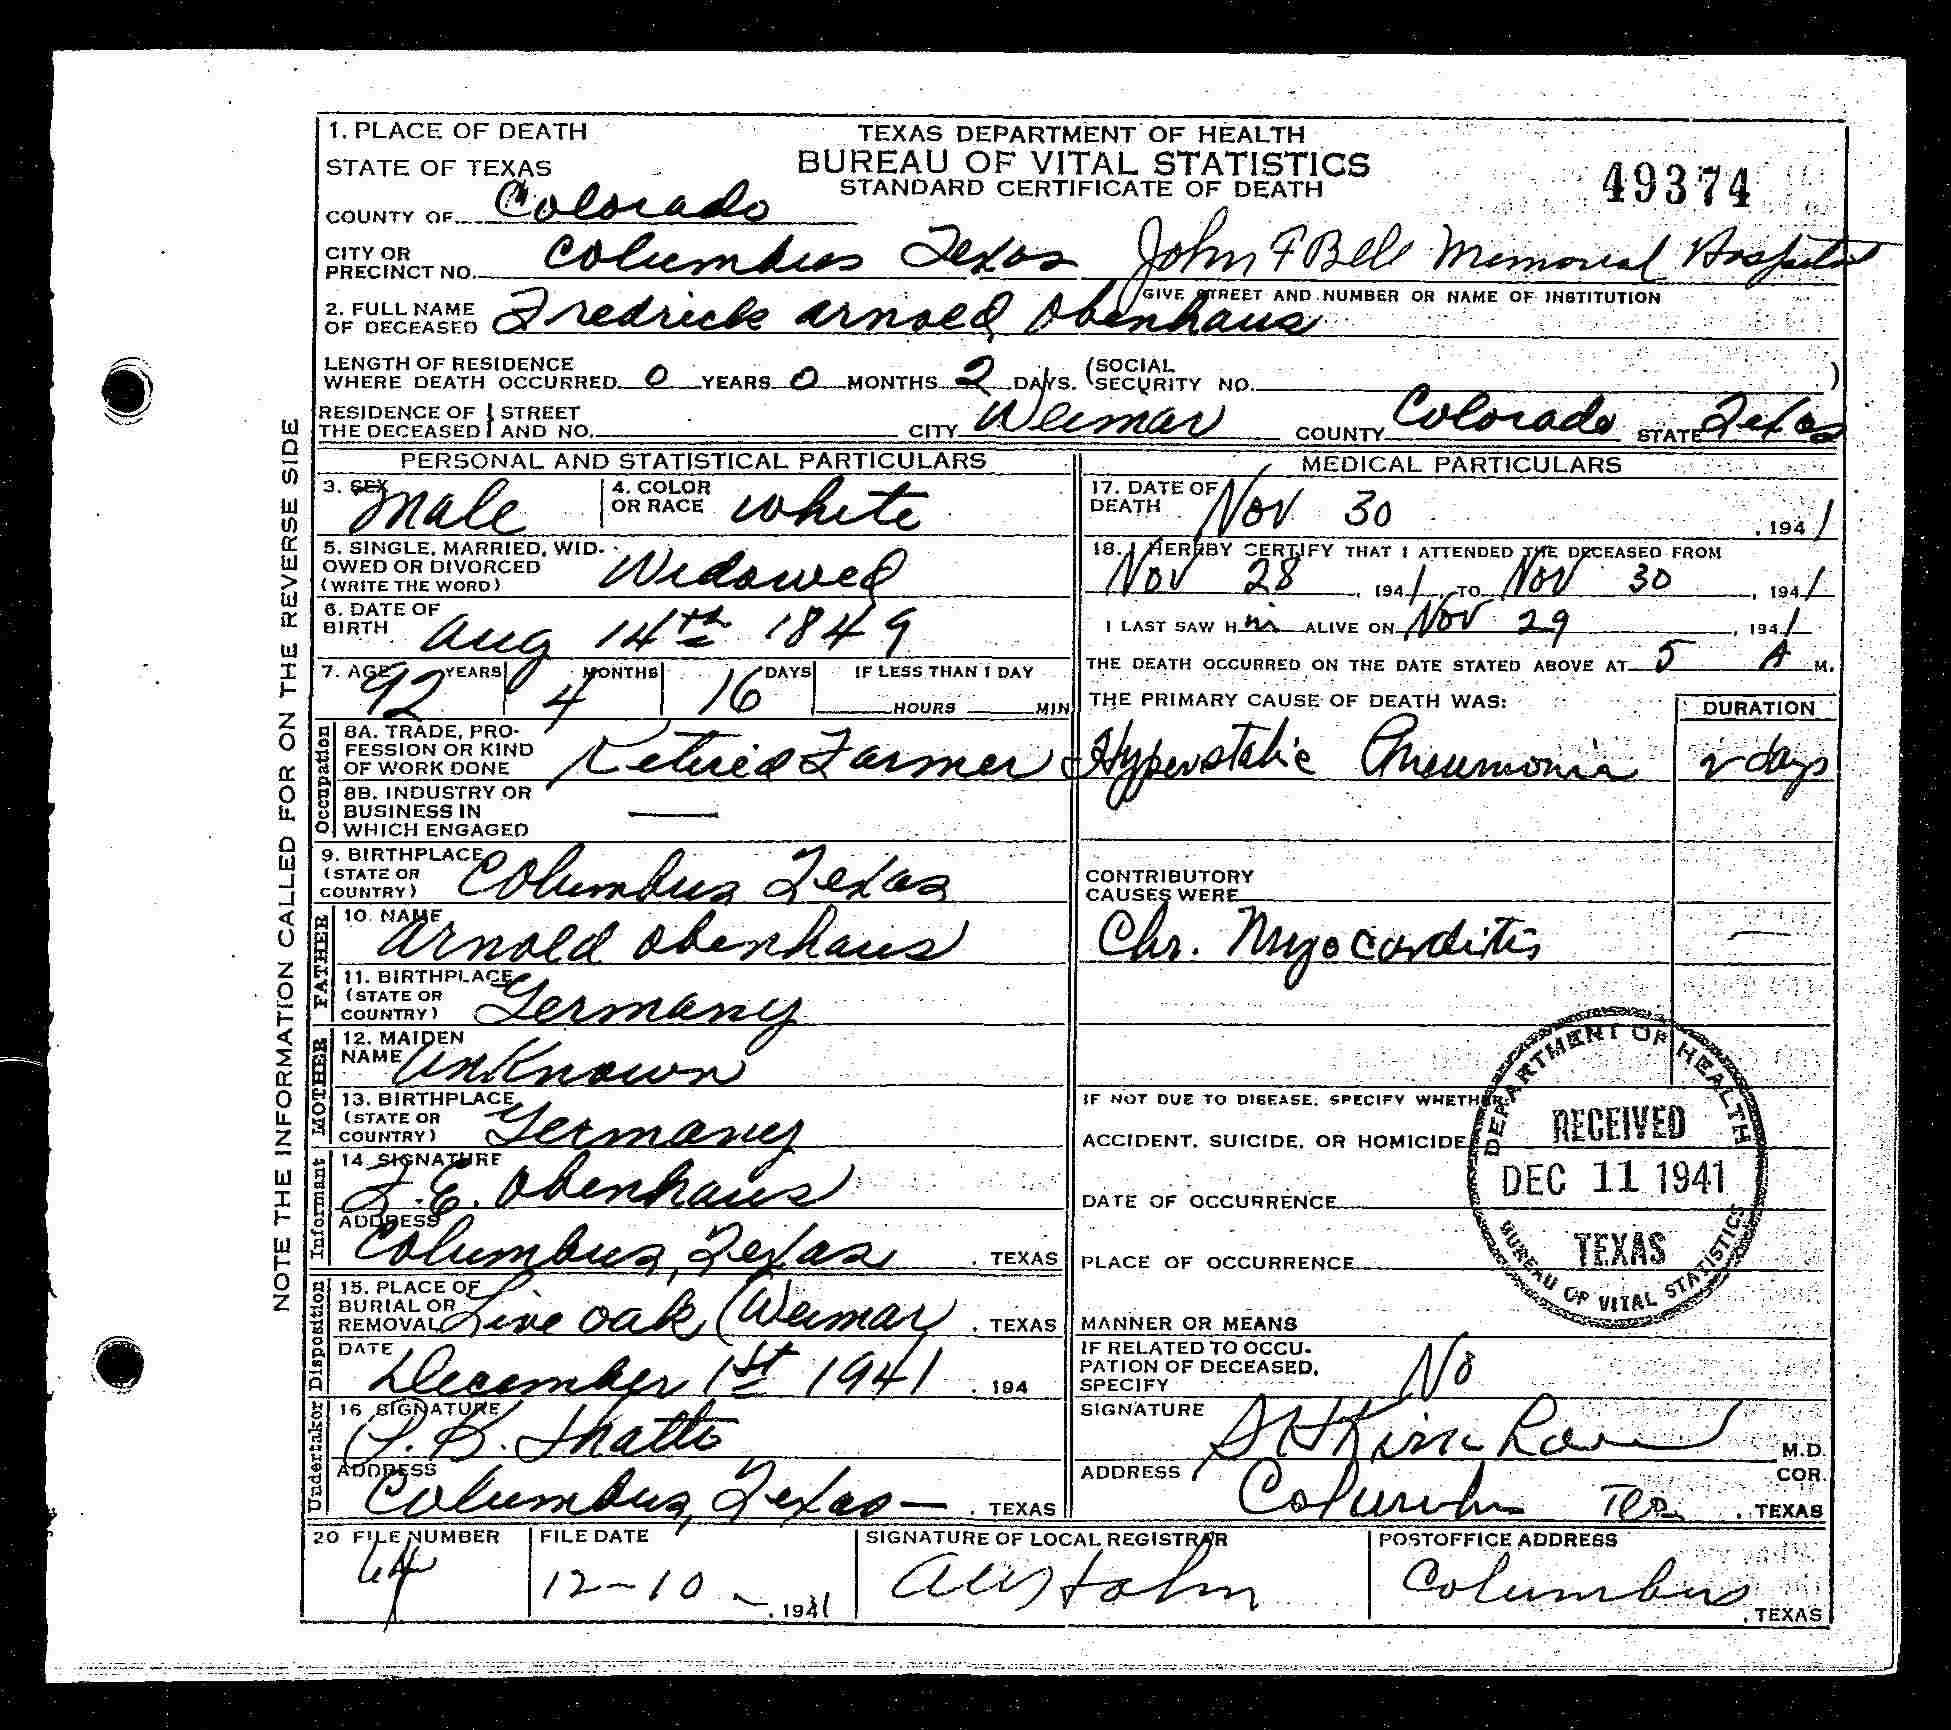 1. PLACE OF DEATH
STATE OF TEXAS
COUNTY OF Colorado
TEXAS DEPARTMENT OF HEALTH
BUREAU OF VITAL STATISTICS
STANDARD CERTIFICATE OF DEATH
49374
CITY OR
PRECINCT NO. Columbus Texas John F Bell Memorial Hospital
GIVE STREET AND NUMBER OR NAME OF INSTITUTION
2. FULL NAME
OF DECEASED Fredrick Arnold Obenhaus
LENGTH OF RESIDENCE
WHERE DEATH OCCURRED 0 YEARS 0 MONTHS 2 DAYS. (SOCIAL
SECURITY NO. )
RESIDENCE OF THE DECEASED STREET AND NO. CITY Weimar COUNTY Colorado STATE Texas
NOTE THE INFORMATION CALLED FOR ON THE REVERSE SIDE
PERSONAL AND STATISTICAL PARTICULARS
3. SEX Male
4. COLOR
OR RACE White
5. SINGLE, MARRIED, WID-
OWED OR DIVORCED
(WRITE THE WORD) Widowed
6. DATE OF
BIRTH Aug 14th 1849
7. AGE 92 YEARS 4 MONTHS 16 DAYS IF LESS THAN 1 DAY
HOURS MIN
Occupation
8A. TRADE, PRO-
FESSION OR KIND
OF WORK DONE Retired Farmer
8B. INDUSTRY OR
BUSINESS IN
WHICH ENGAGED —
9. BIRTHPLACE
(STATE OR
COUNTRY) Columbus Texas
FATHER
10. NAME Arnold Obenhaus
11. BIRTHPLACE
(STATE OR
COUNTRY) Germany
MOTHER
12. MAIDEN
NAME UnKnown
13. BIRTHPLACE
(STATE OR
COUNTRY) Germany
Informant
14. SIGNATURE F. E. Obenhaus
ADDRESS Columbus, Texas . TEXAS
Disposition
15. PLACE OF
BURIAL OR
REMOVAL Live oak (Weimar . TEXAS
DATE December 1st 1941 . 194
Undertaker
16 SIGNATURE
ADDRESS Columbus, Texas — . TEXAS
MEDICAL PARTICULARS
17. DATE OF
DEATH Nov 30 , 1941
18. I HEREBY CERTIFY THAT I ATTENDED THE DECEASED FROM
Nov 28 , 1941, TO Nov 30 , 1941
I LAST SAW Him ALIVE ON Nov 29 , 1941
THE DEATH OCCURRED ON THE DATE STATED ABOVE AT 5 A M.
THE PRIMARY CAUSE OF DEATH WAS: DURATION
Hyperstatic Pneumonia 2 days
CONTRIBUTORY
CAUSES WERE
Chr. Myocarditis —
IF NOT DUE TO DISEASE, SPECIFY WHETHER:
ACCIDENT, SUICIDE, OR HOMICIDE
DATE OF OCCURRENCE
PLACE OF OCCURRENCE
MANNER OR MEANS
DEPARTMENT OF HEALTH
RECEIVED
DEC 11 1941
TEXAS
BUREAU OF VITAL STATISTICS
IF RELATED TO OCCU-
PATION OF DECEASED,
SPECIFY No
SIGNATURE M.D.
COR.
ADDRESS Columbus Tex . TEXAS
20 FILE NUMBER 64
FILE DATE 12-10 , 1941
SIGNATURE OF LOCAL REGISTRAR
POSTOFFICE ADDRESS Columbus , TEXAS